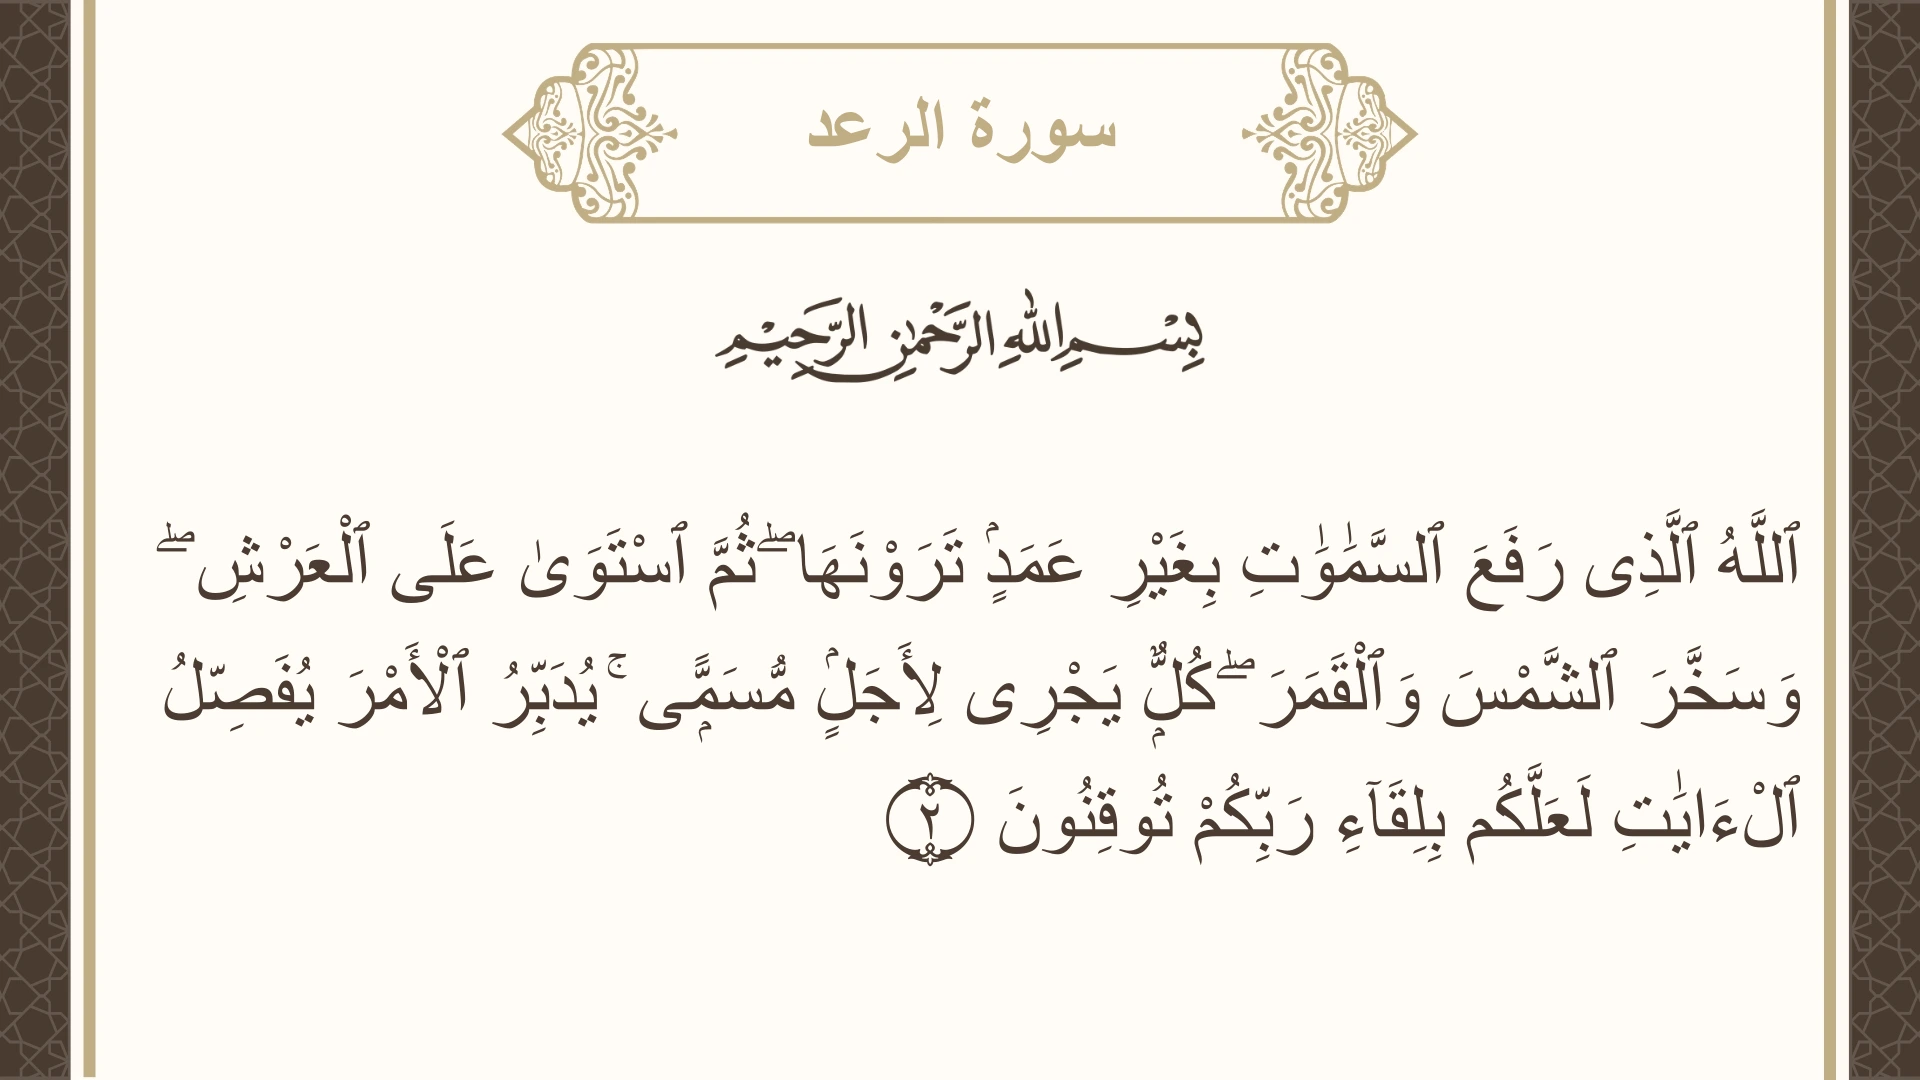 سورة الرعد
بِسْمِ اللهِ الرَّحْمٰنِ الرَّحِيْمِ
ٱللَّهُ ٱلَّذِى رَفَعَ ٱلسَّمَٰوَٰتِ بِغَيْرِ عَمَدٍۢ تَرَوْنَهَا ۖ ثُمَّ ٱسْتَوَىٰ عَلَى ٱلْعَرْشِ ۖ
وَسَخَّرَ ٱلشَّمْسَ وَٱلْقَمَرَ ۖ كُلٌّۭ يَجْرِى لِأَجَلٍۢ مُّسَمًّۭى ۚ يُدَبِّرُ ٱلْأَمْرَ يُفَصِّلُ
ٱلْءَايَٰتِ لَعَلَّكُم بِلِقَآءِ رَبِّكُمْ تُوقِنُونَ ٢